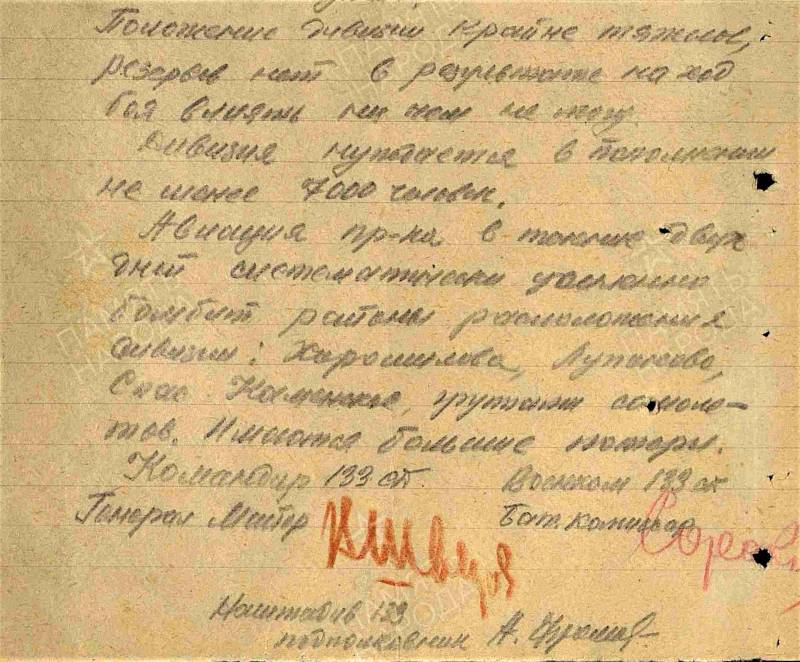 Положение дивизии крайне тяжелое,
резервов нет в результате на ход
боя влиять ни чем не могу.
Дивизия нуждается в пополнении
не менее 7000 человек.
Авиация пр-ка в течение двух
дней систематически усиленно
бомбит районы расположения
дивизии: Харамилова, Лупаново,
Спас Каменское, группами самоле-
тов. Имеются большие потери.
Командир 133 сд Военком 133 сд
Генерал Майор Швецов Бат. комиссар
Наштадив 133
подполковник А.